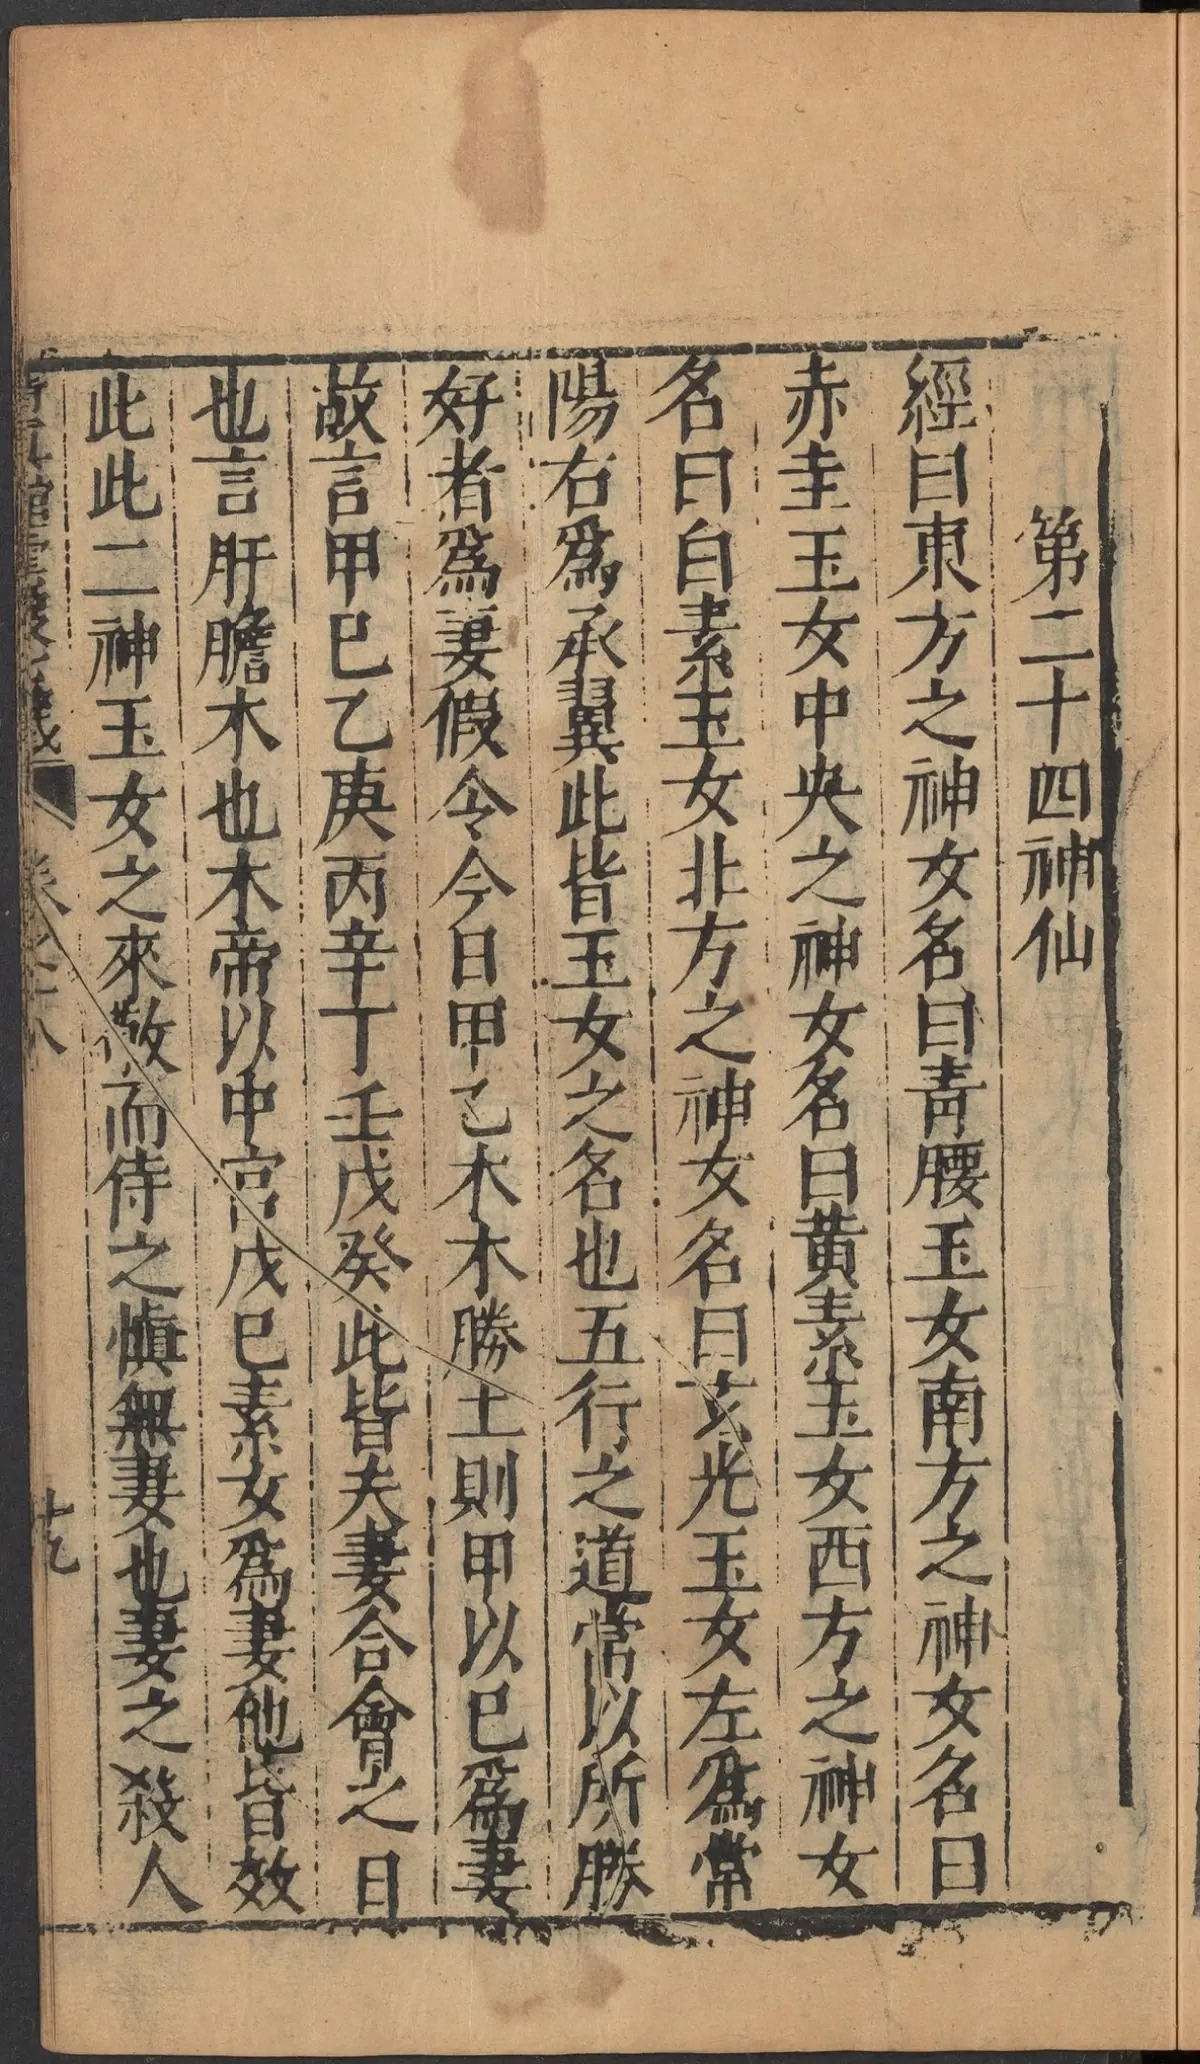 第二十四神仙
經曰東方之神女名曰青腰玉女南方之神女名曰
赤圭玉女中央之神女名曰黃素玉女西方之神女
名曰白素玉女北方之神女名曰玄光玉女左爲常
陽右爲承翼此皆玉女之名也五行之道常以所勝
好者爲妻假令今日甲乙木木勝土則甲以巳爲妻
故言甲巳乙庚丙辛丁壬戊癸此皆夫妻合會之日
也言肝膽木也木帝以中宮戊巳素女爲妻他皆效
此此二神玉女之來敬而侍之愼無妻也妻之殺人
卷之二八
十九